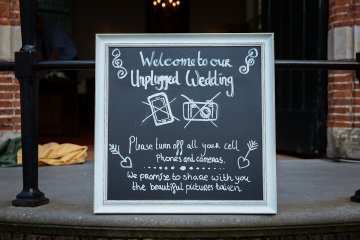 Welcome to our
Unplugged Wedding
Please turn off all your cell
Phones and cameras.
We promise to share with you
the beautiful pictures taken